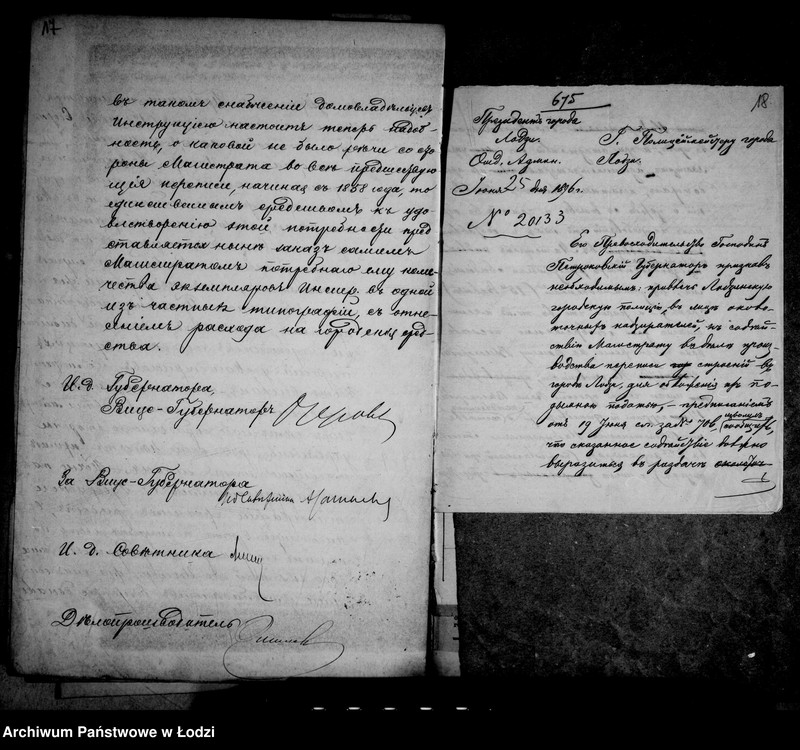 17
въ такомъ снабженіи домовладѣльцевъ
Инструкціею настоитъ теперь надоб-
ность, о каковой не было рѣчи со сто-
роны Магистрата во всѣ предшествую-
щія переписи, начиная съ 1868 года, то
единственнымъ средствомъ къ удо-
влетворенію этой потребности пред-
ставляется нынѣ заказъ самимъ
Магистратомъ потребнаго ему коли-
чества экземпляровъ Инстр. въ одной
изъ частныхъ типографій, съ отне-
сеніемъ расхода на городскія сред-
ства.
И. д. Губернатора,
Вице-Губернаторъ
За Вице-Губернатора
И. д. Совѣтника
Дѣлопроизводитель
675
18
Президентъ города
Лодзи.
Отд. Админ.
Іюня 25 дня 1896 г.
№ 20133
Г. Полиціймейстеру города
Лодзи.
Его Превосходительство Господинъ
Петроковскій Губернаторъ признавъ
необходимымъ: привлечь Лодзинскую
городскую полицію, въ лицѣ около-
точныхъ надзирателей, къ содѣй-
ствію Магистрату въ дѣлѣ произ-
водства переписи строеній въ
городѣ Лодзи, для обложенія ихъ по-
дымною податью, — предписаніемъ
отъ 19 Іюня за № 706,
что сказанное содѣйствіе
выразиться въ раздачѣ околоточ-